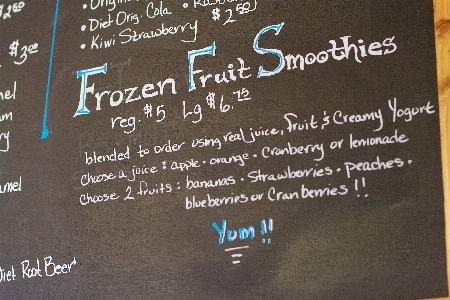 • Diet Orig. Cola •
• Kiwi Strawberry $2.50
$3.00
Frozen Fruit Smoothies
reg. $5 Lg $6.75
blended to order using real juice, fruit & Creamy Yogurt
choose a juice : apple • orange • Cranberry or lemonade
choose 2 fruits : bananas • Strawberries • peaches •
blueberries or Cranberries !!
Yum !!
Diet Root Beer